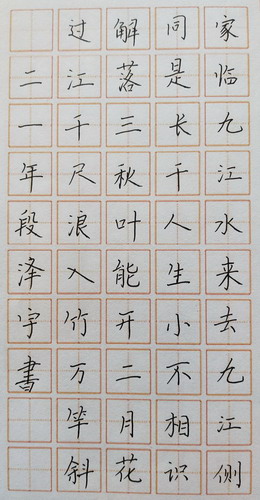 家临九江水来去九江侧
同是长干人生小不相识
解落三秋叶能开二月花
过江千尺浪入竹万竿斜
二一年段泽宇書